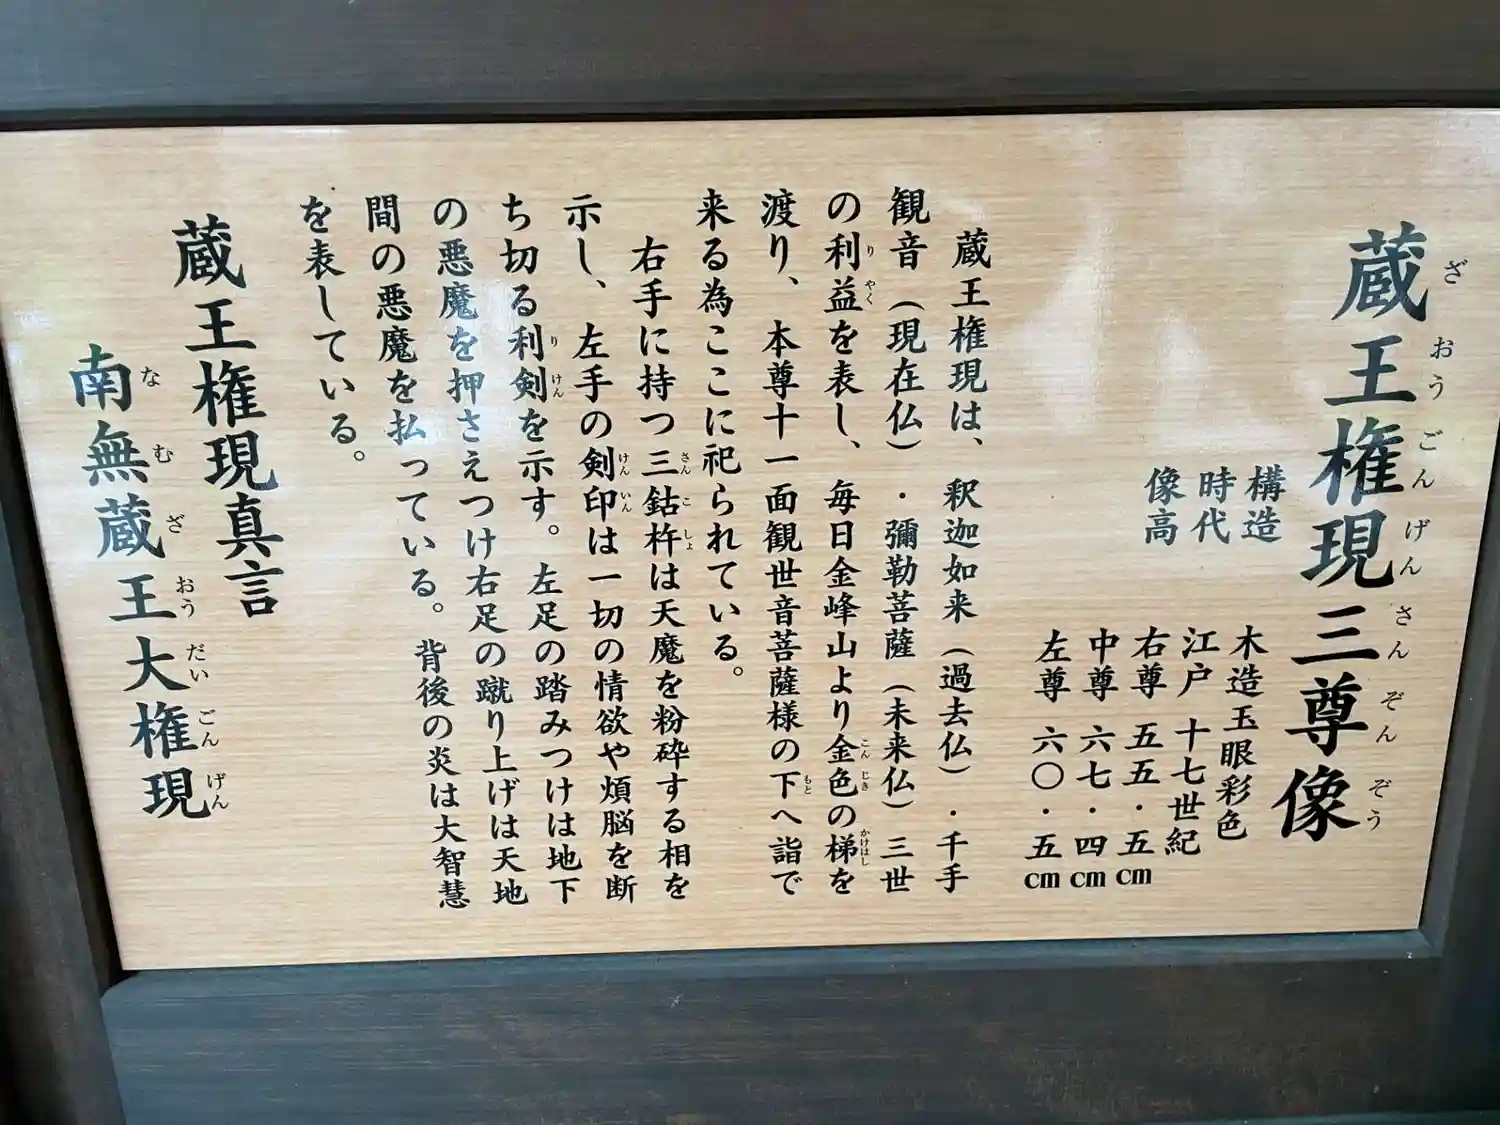 蔵王権現三尊像
ざおうごんげんさんぞんぞう
構造　木造玉眼彩色
時代　江戸　十七世紀
像高　右尊　五五・五cm
中尊　六七・四cm
左尊　六〇・五cm
蔵王権現は、釈迦如来（過去仏）・千手
観音（現在仏）・彌勒菩薩（未来仏）三世
の利益を表し、毎日金峰山より金色の梯を
りやく
こんじき
かけはし
渡り、本尊十一面観世音菩薩様の下へ詣で
もと
来る為ここに祀られている。
右手に持つ三鈷杵は天魔を粉砕する相を
さんこしょ
示し、左手の剣印は一切の情欲や煩脳を断
けんいん
ち切る利剣を示す。左足の踏みつけは地下
りけん
の悪魔を押さえつけ右足の蹴り上げは天地
間の悪魔を払っている。背後の炎は大智慧
を表している。
蔵王権現真言
南無蔵王大権現
なむざおうだいごんげん